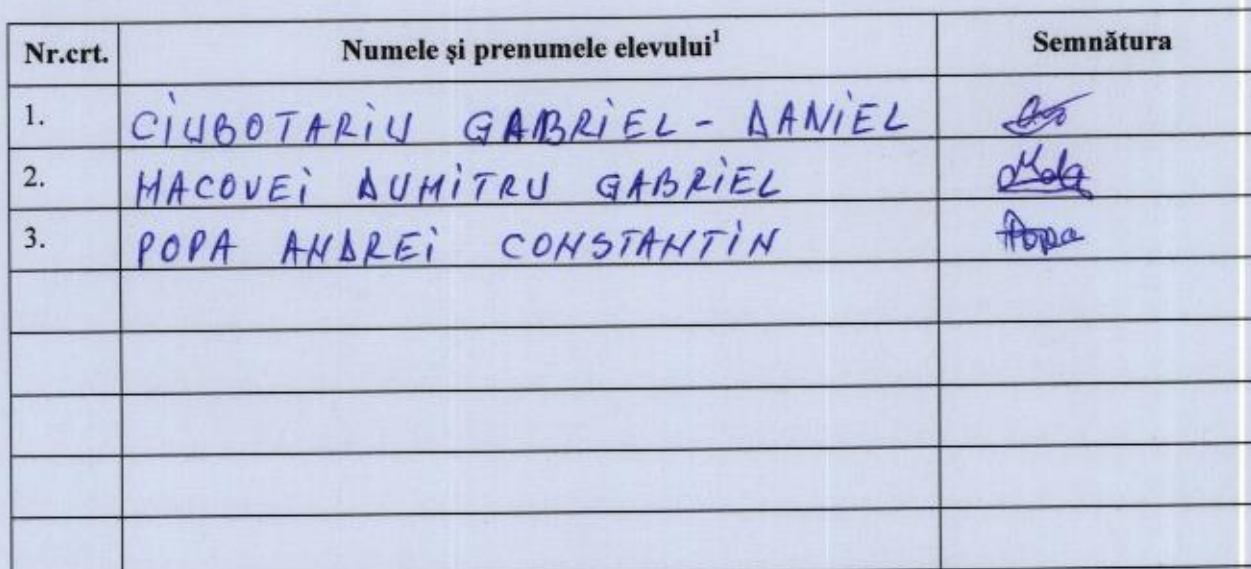 Nr.crt. Numele și prenumele elevului¹ Semnătura
1. CIUBOTARIU GABRIEL - DANIEL
2. MACOVEI DUMITRU GABRIEL
3. POPA ANDREI CONSTANTIN Popa